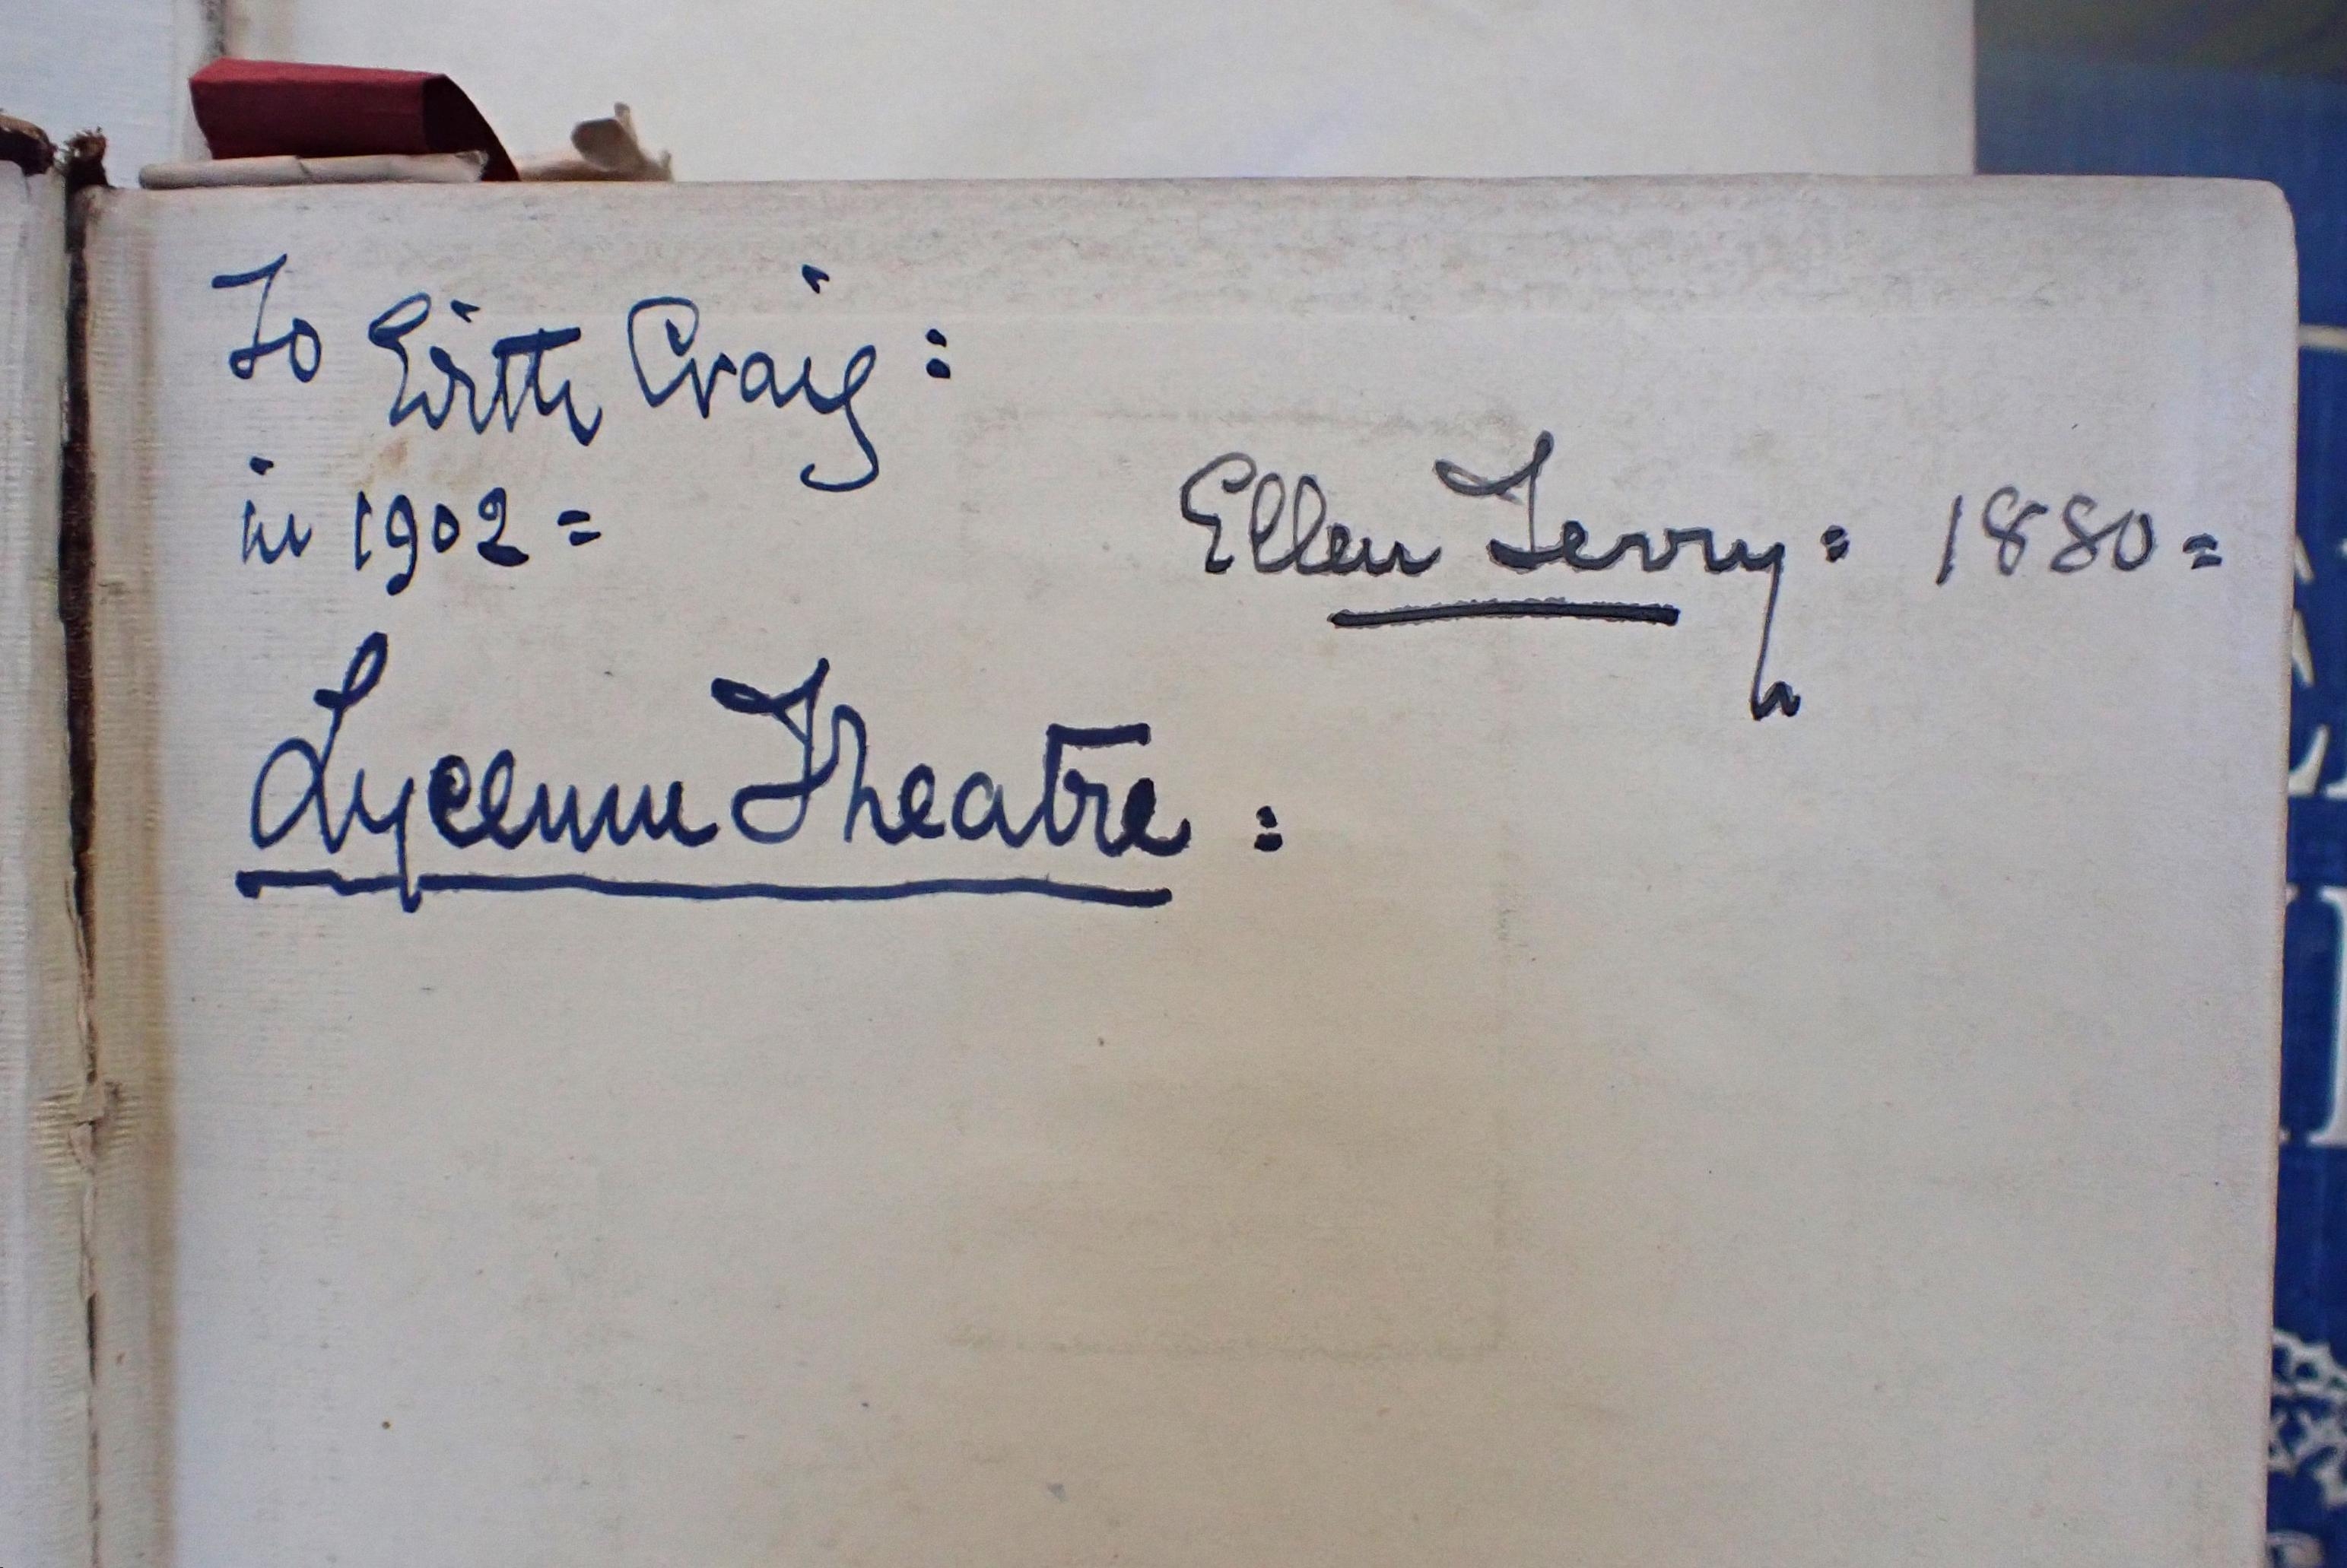 To Edith Craig :
in 1902 =
Ellen Terry : 1880 =
Lyceum Theatre :